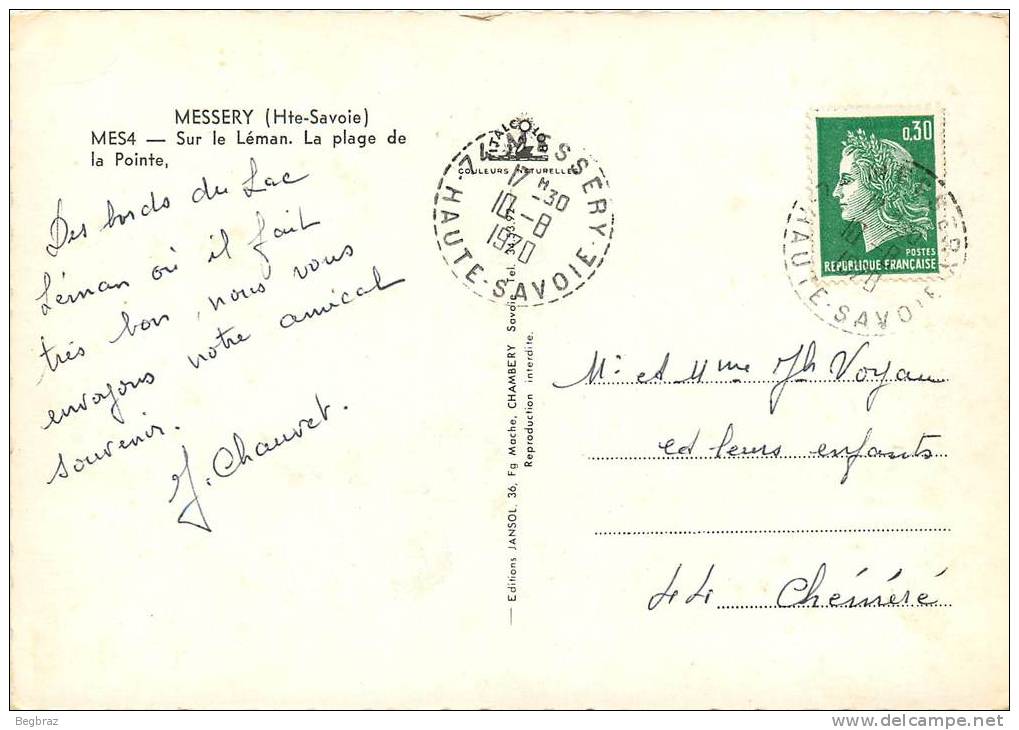 MESSERY (Hte-Savoie)
MES4 — Sur le Léman. La plage de
la Pointe,
Des bords du Lac
Léman où il fait
très bon, nous vous
envoyons notre amical
souvenir.
J. Chauvet.
ITALCOLOR
COULEURS NATURELLES
74 MESSERY
17 H -30
10 -8
1970
HAUTE-SAVOIE
— Editions JANSOL, 36, Fg Mache, CHAMBERY Savoie Tel. 34.13.92
Reproduction interdite.
0,30
POSTES
REPUBLIQUE FRANÇAISE
HAUTE-SAVOIE
Mr et Mme Jh Voyau
et leurs enfants
44 Chéméré
Begbraz
www.delcampe.net